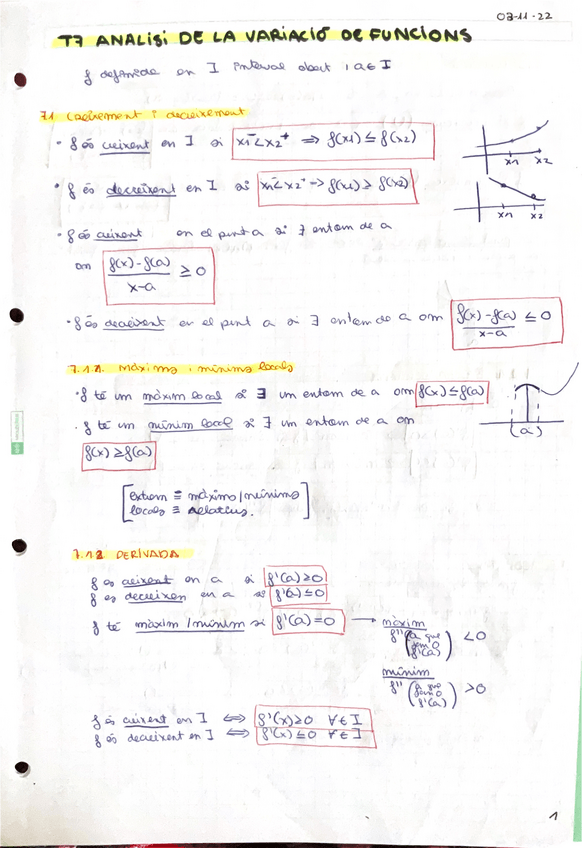 03-11-22
T7 ANALISI DE LA VARIACIÓ DE FUNCIONS
f definida en I interval obert i a ∈ I
7.1 Creixement i decreixement
· f és creixent en I si x1⁻ < x2⁺ ⇒ f(x1) ≤ f(x2)
x1 x2
· f és decreixent en I si x1⁻ < x2⁺ → f(x1) ≥ f(x2)
x1 x2
· f és creixent en el punt a si ∃ entorn de a
on f(x) - f(a) / x-a ≥ 0
· f és decreixent en el punt a si ∃ entorn de a om f(x) - f(a) / x-a ≤ 0
7.1.1. Màxims i mínims locals
· f té un màxim local si ∃ un entorn de a om f(x) ≤ f(a)
(a)
· f té un mínim local si ∃ un entorn de a om
f(x) ≥ f(a)
[extrem ≡ màxims/mínims
locals ≡ relatius.]
7.1.2 DERIVADA
f es creixent en a si f'(a) ≥ 0
f es decreixen en a si f'(a) ≤ 0
f té màxim/mínim si f'(a) = 0 → màxim
f'' (a que fem 0 f'(a)) < 0
mínim
f'' (a que fem 0 f'(a)) > 0
f és creixent en I ⇔ f'(x) ≥ 0 ∀ ∈ I
f és decreixent en I ⇔ f'(x) ≤ 0 ∀ ∈ I
1